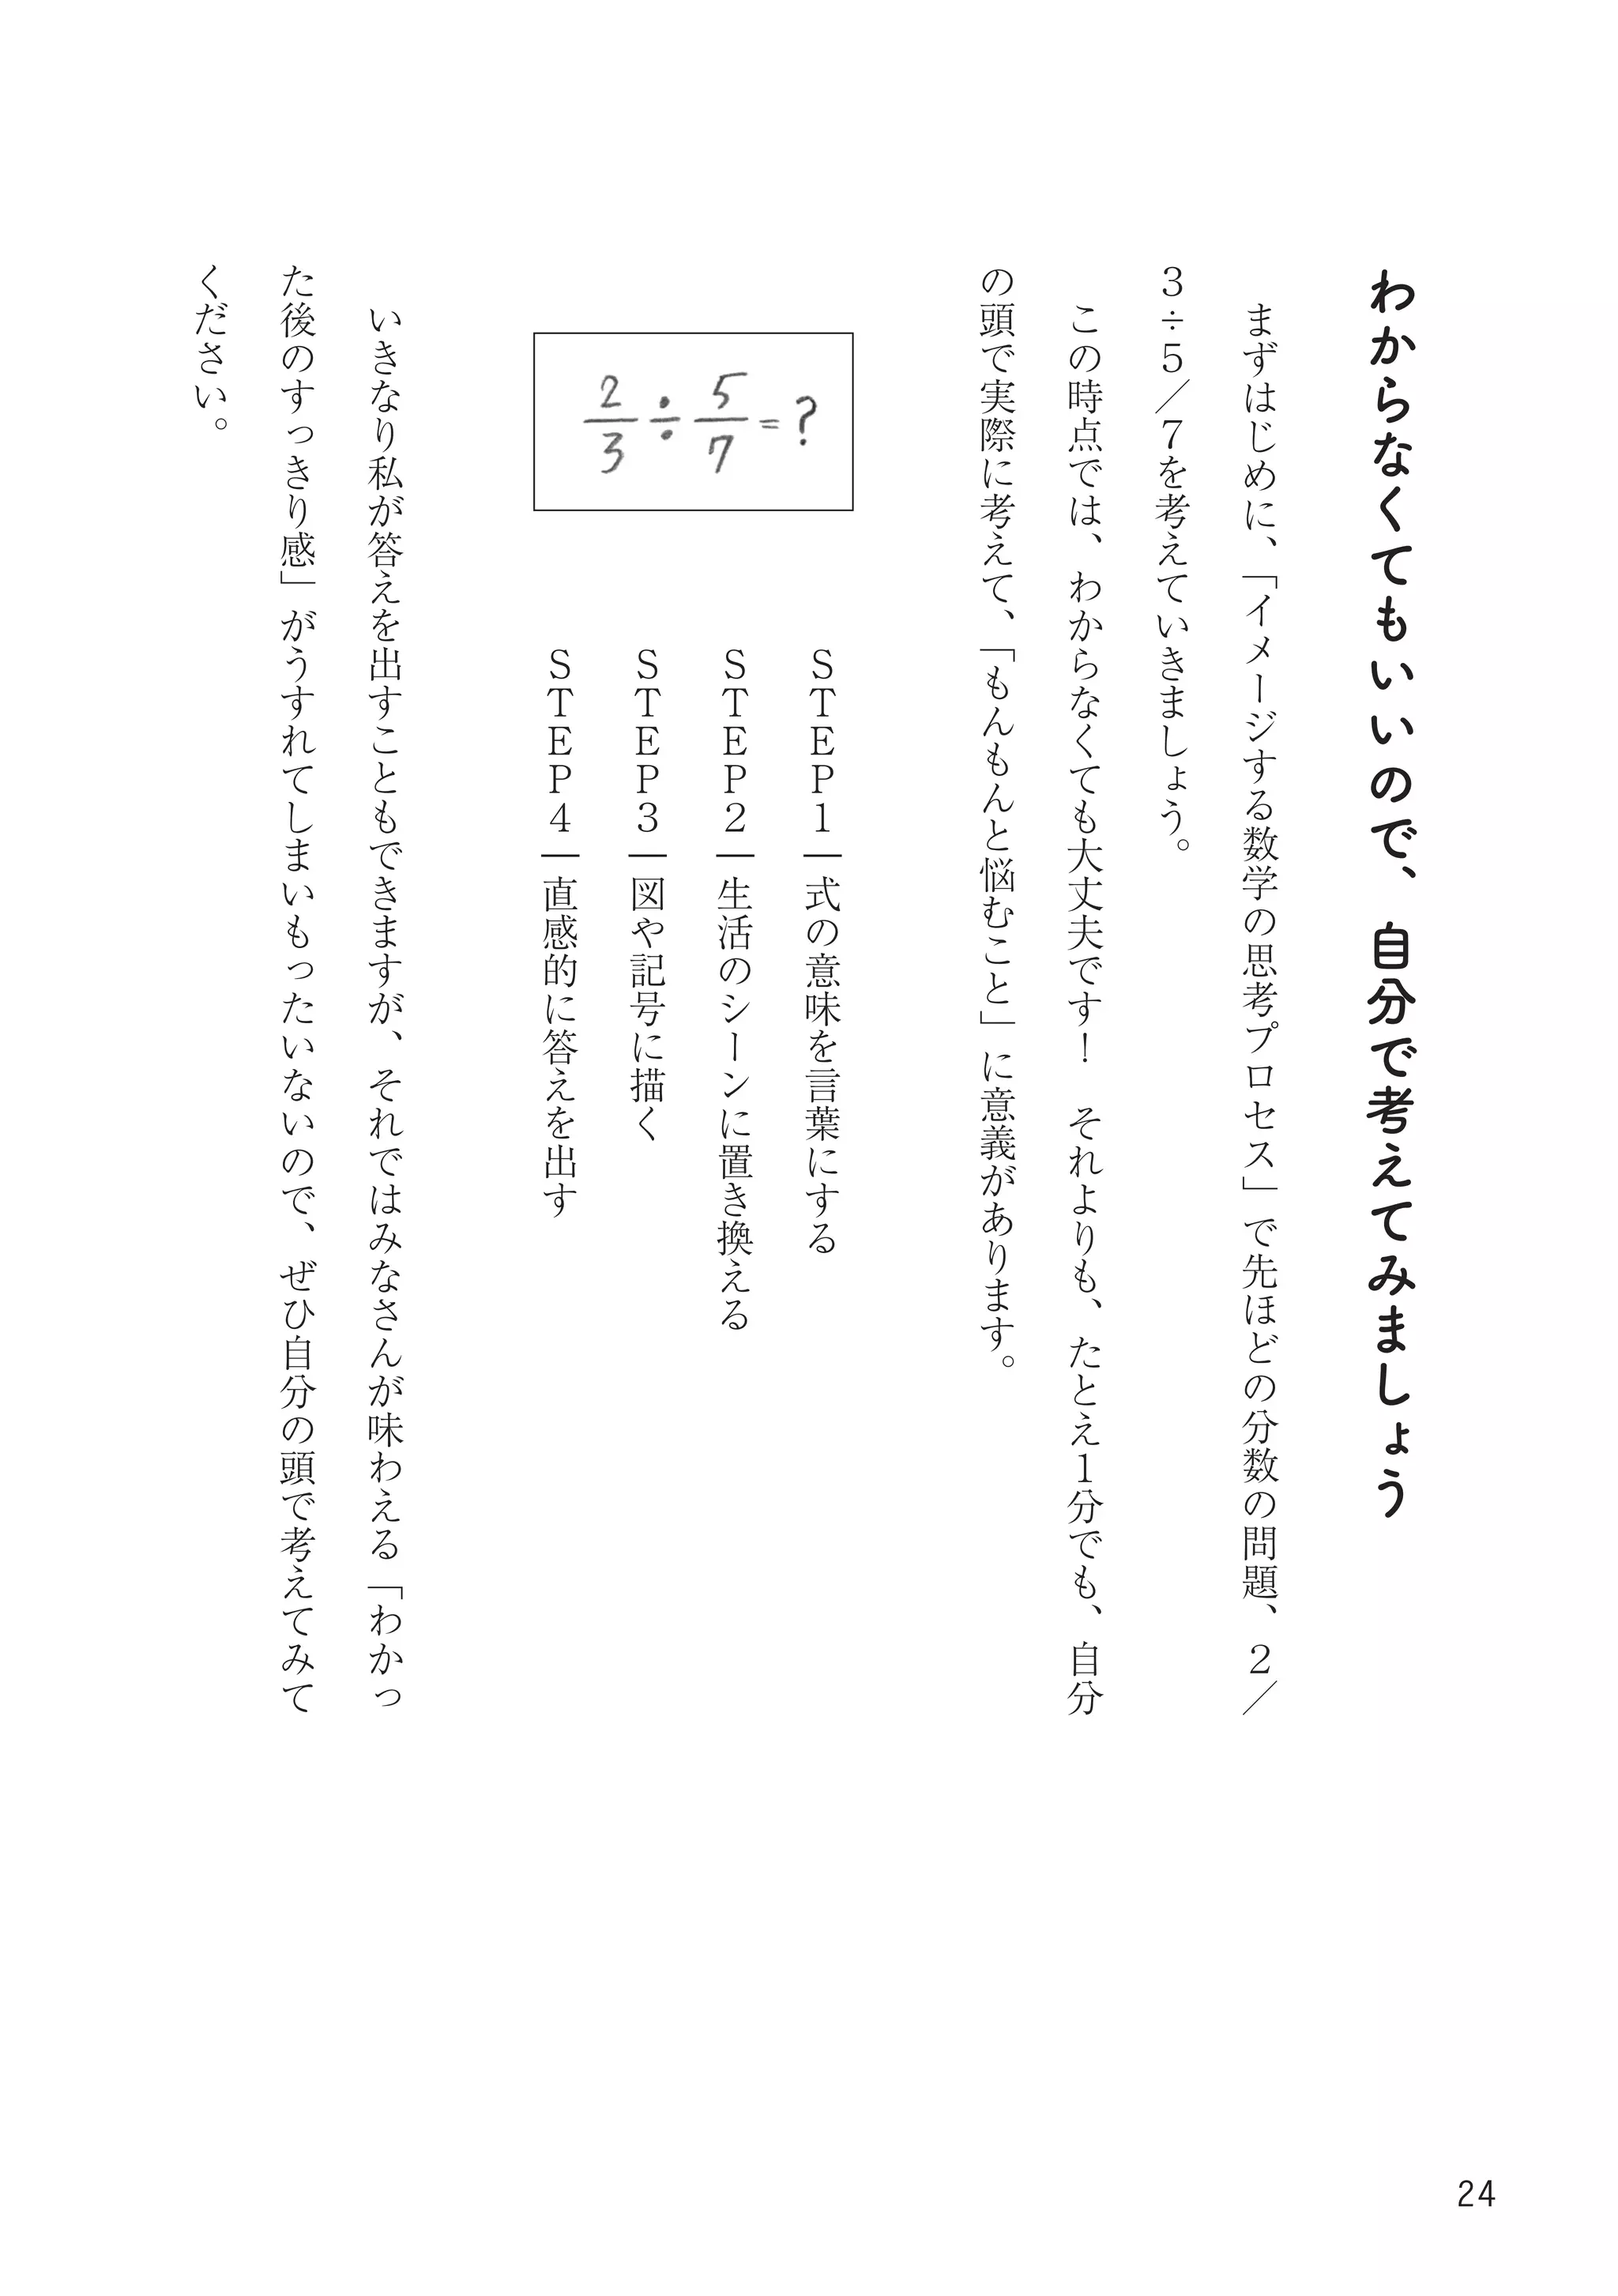 わからなくてもいいので、自分で考えてみましょう
まずはじめに、「イメージする数学の思考プロセス」で先ほどの分数の問題、２／
３÷５／７を考えていきましょう。
この時点では、わからなくても大丈夫です！　それよりも、たとえ１分でも、自分
の頭で実際に考えて、「もんもんと悩むこと」に意義があります。
2/3 ÷ 5/7 = ?
ＳＴＥＰ１｜式の意味を言葉にする
ＳＴＥＰ２｜生活のシーンに置き換える
ＳＴＥＰ３｜図や記号に描く
ＳＴＥＰ４｜直感的に答えを出す
いきなり私が答えを出すこともできますが、それではみなさんが味わえる「わかっ
た後のすっきり感」がうすれてしまいもったいないので、ぜひ自分の頭で考えてみて
ください。
24